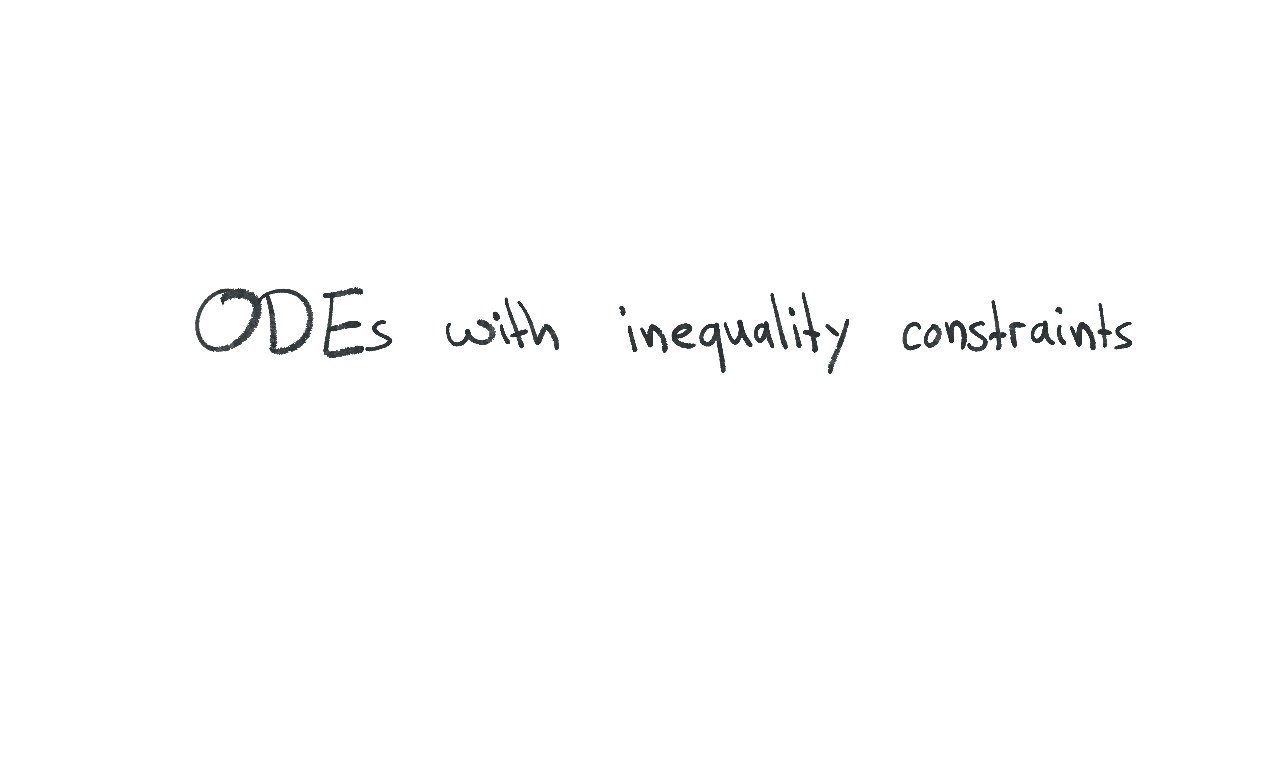 ODEs with inequality constraints